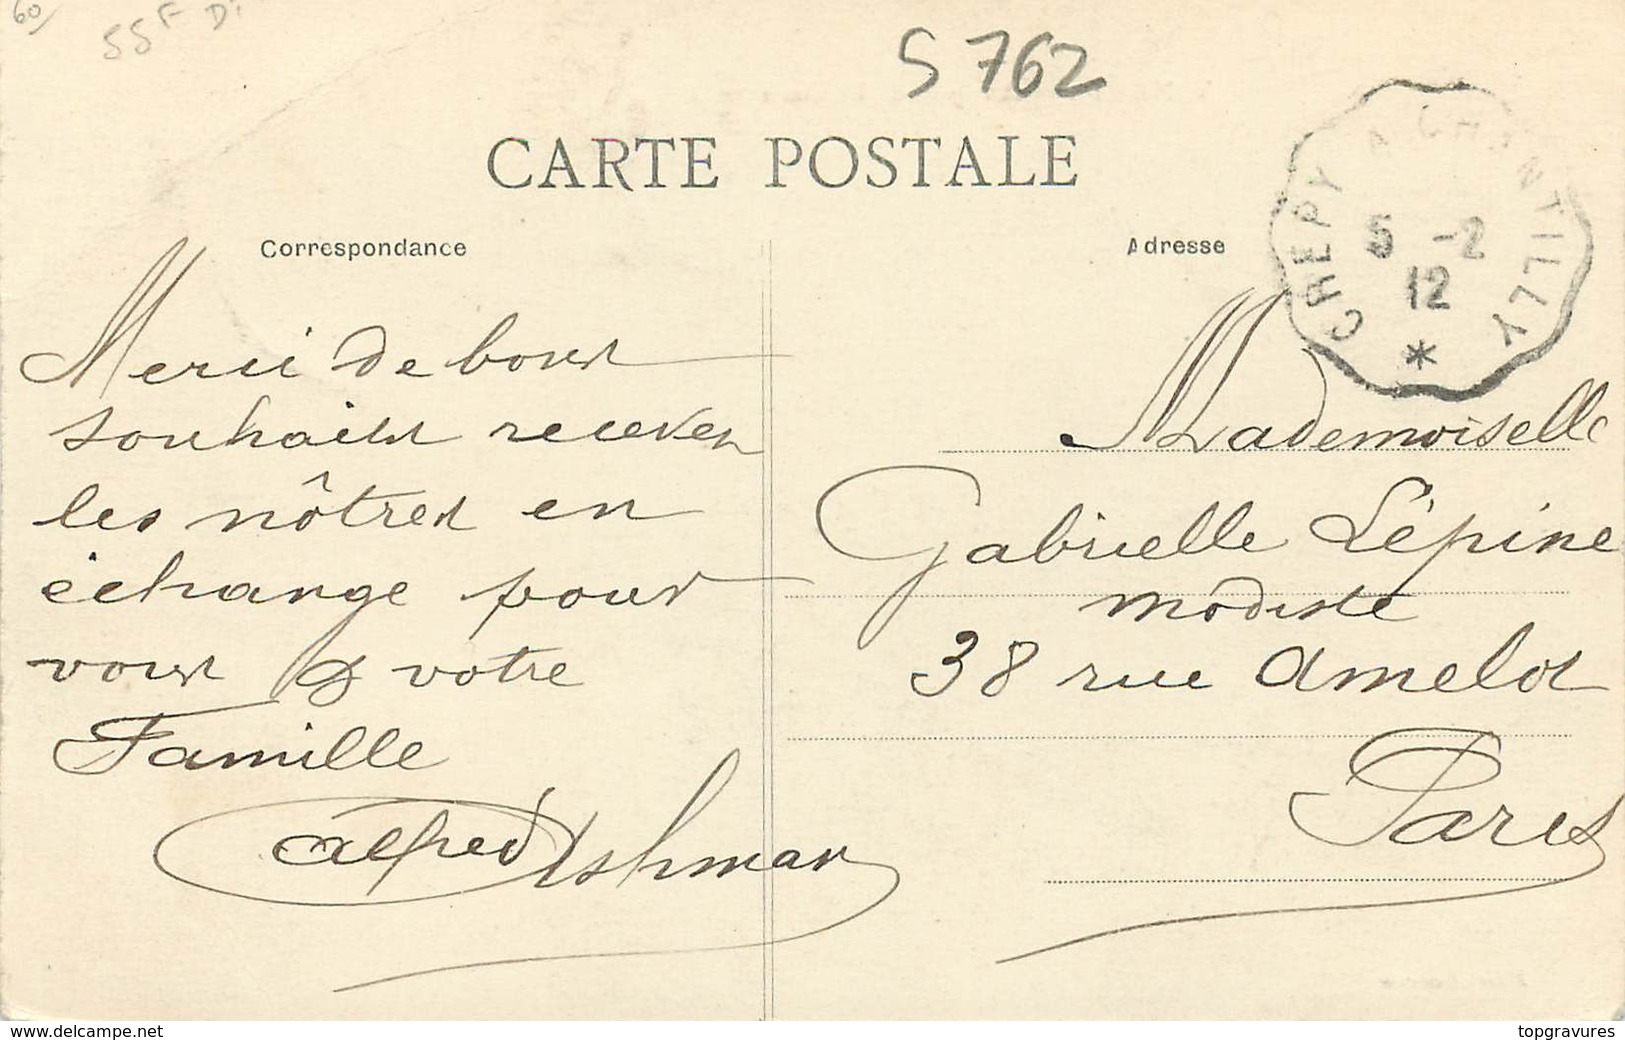 60/
55F Di
S 762
CARTE POSTALE
Correspondance
Adresse
CREPY A CHANTILLY
5 -2
12
*
Merci de bons
souhaits recevez
les nôtres en
échange pour
vous & votre
Famille
Alfred
Mademoiselle
Gabrielle Lépine
modiste
38 rue Amelot
Paris
www.delcampe.net
topgravures